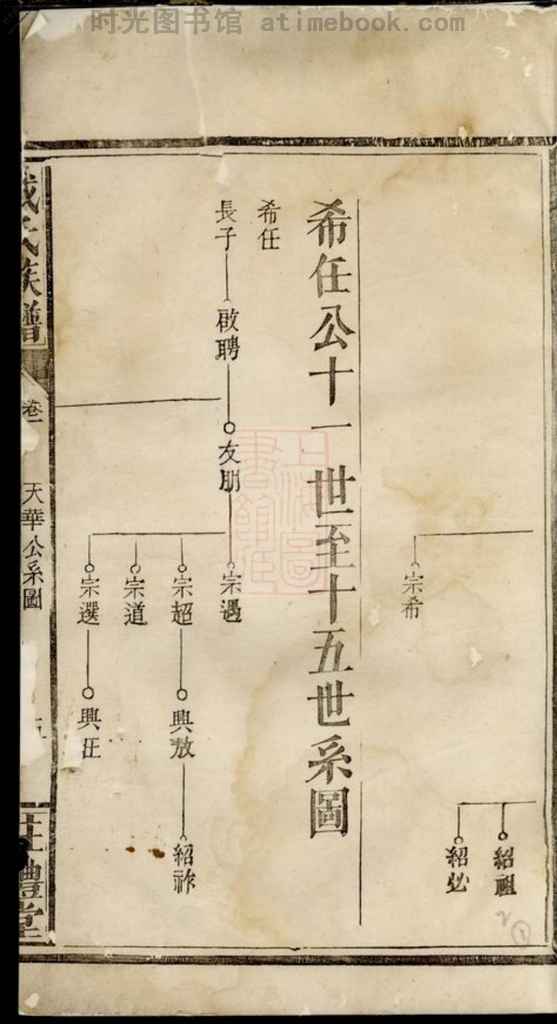 时光图书馆 atimebook.com
紹祖
紹必
宗希
希任公十一世至十五世系圖
希任
長子
啟聘
友朋
宗遇
宗超
宗道
宗選
興敖
興汪
紹祚
氏族譜
卷一
天華公系圖
禮堂